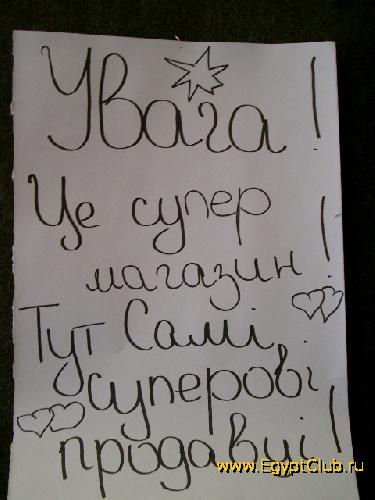 Увага!
Це супер
магазин!
Тут Самі
суперові
продавці!
www.EgyptClub.ru